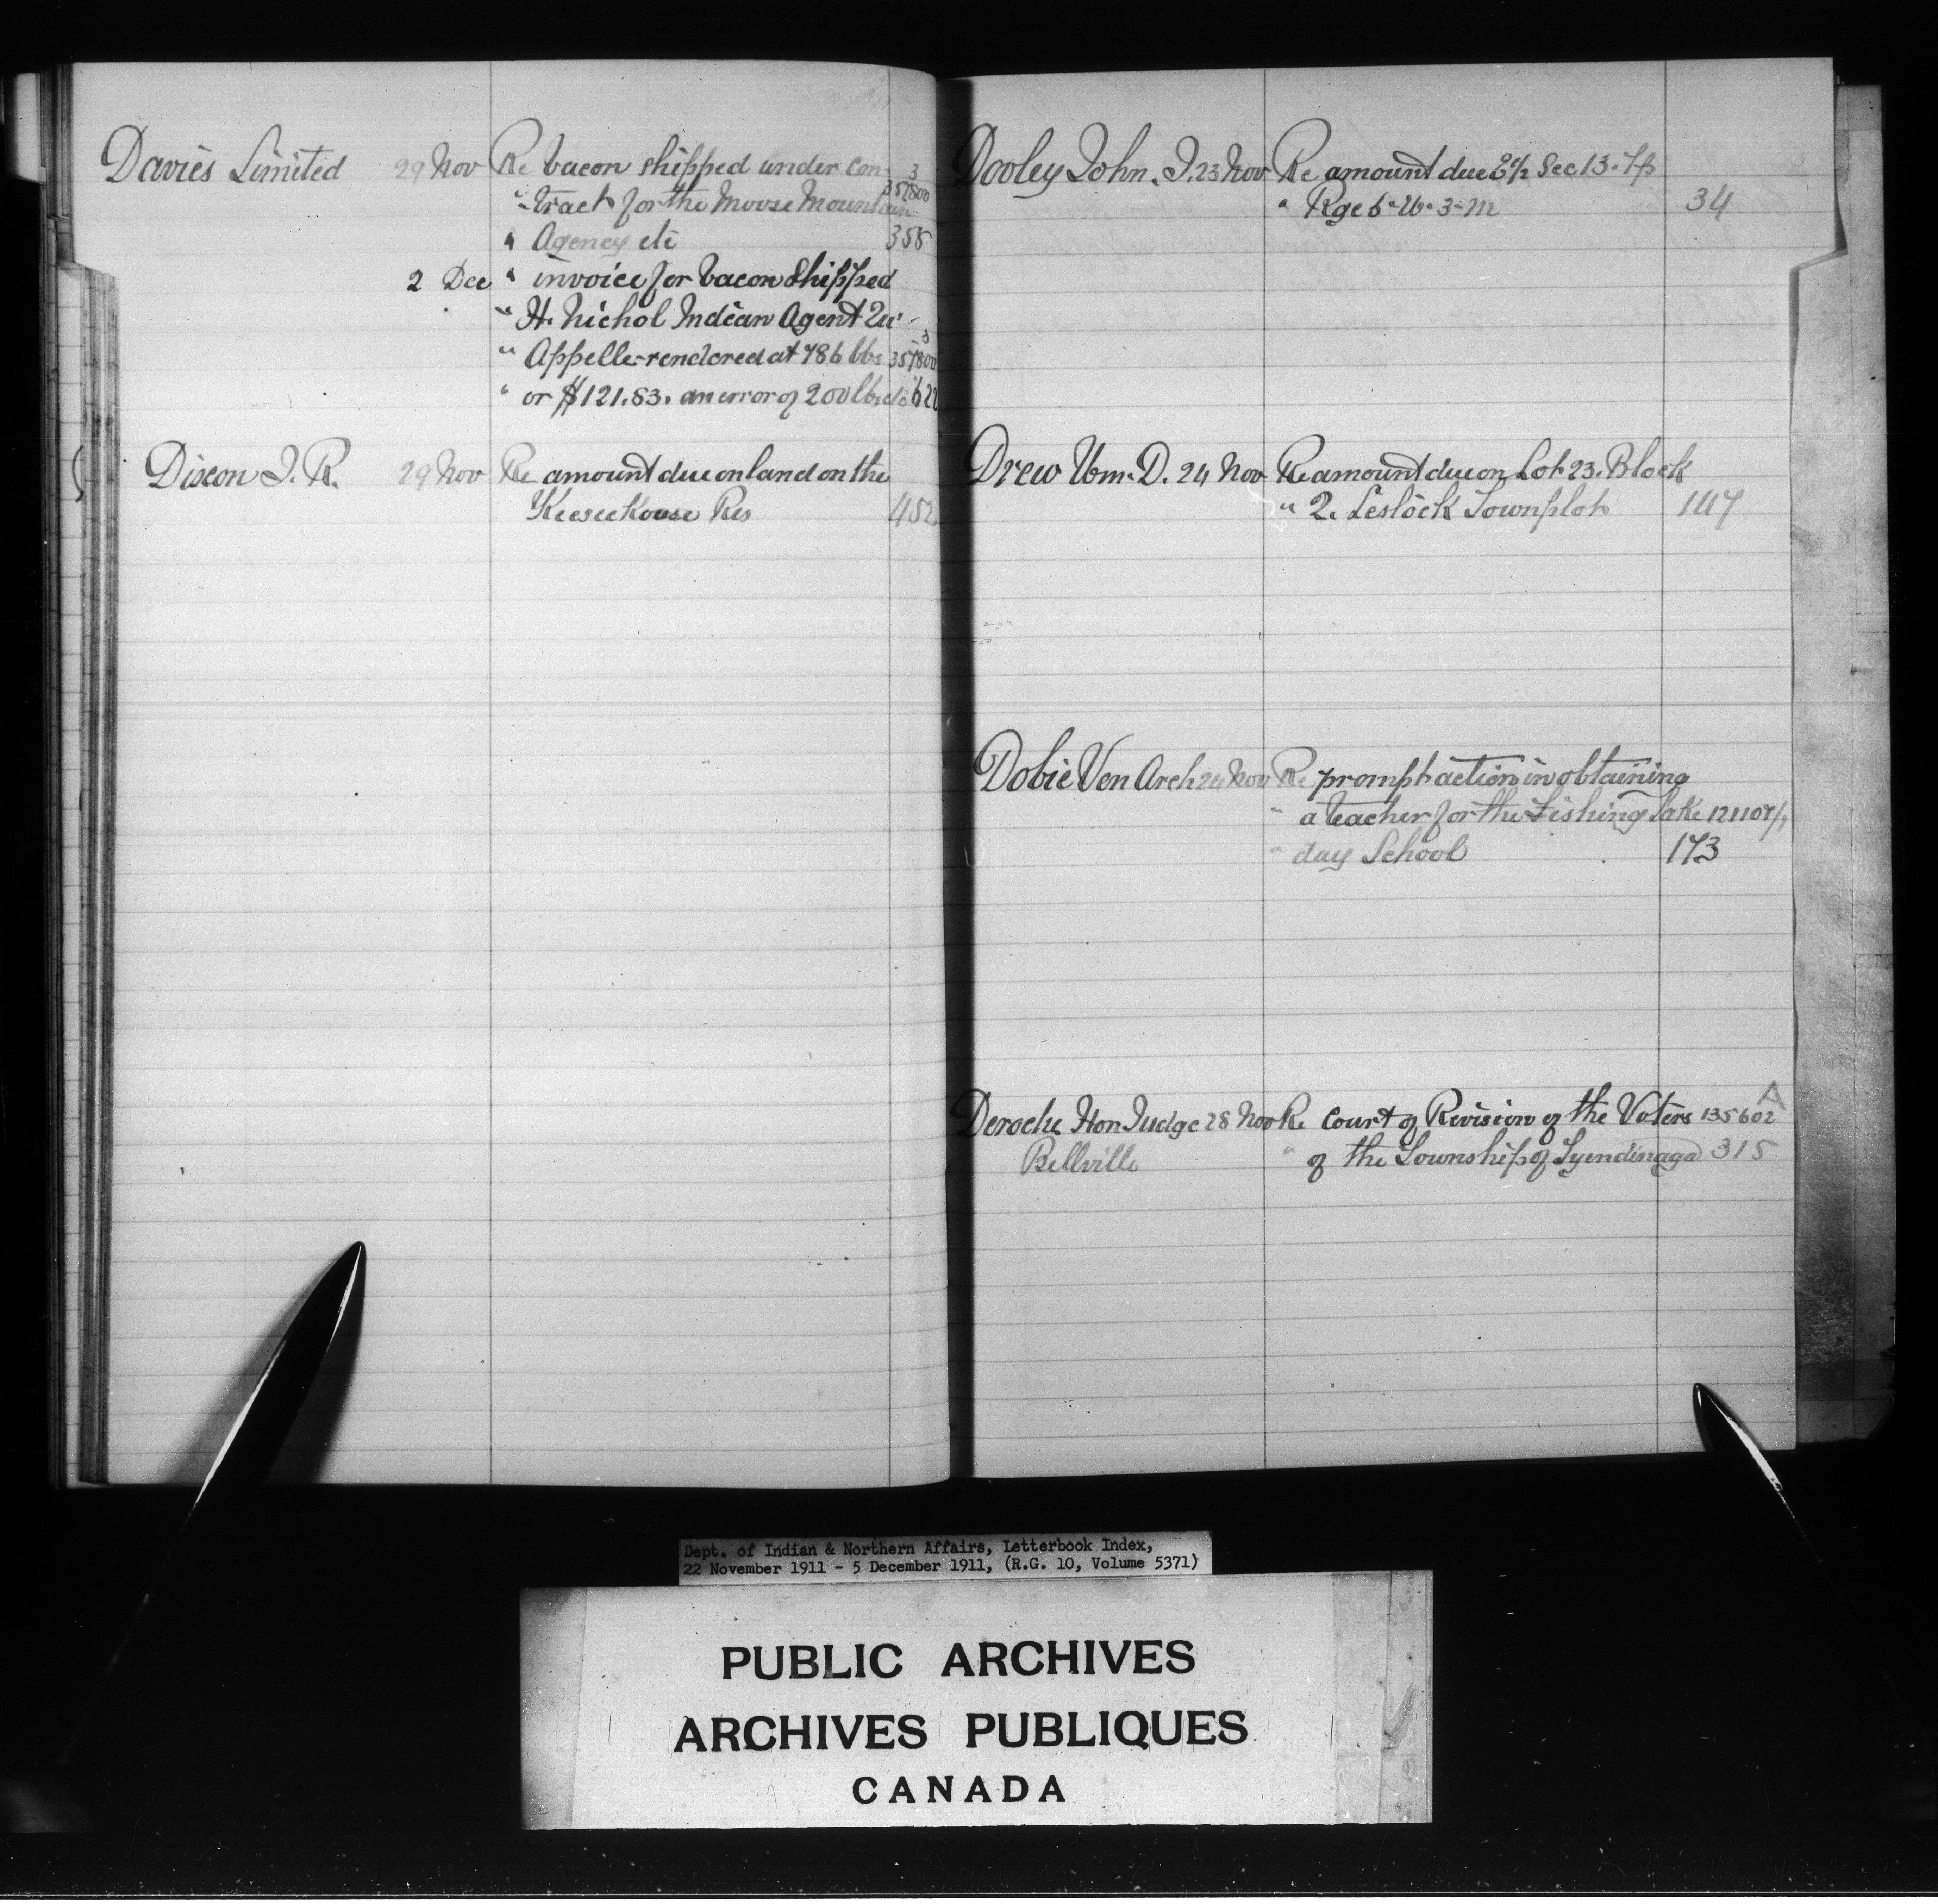 Davies Limited 29 Nov Re bacon shipped under con- 3
" tract for the Moose Mountain 357800
" Agency etc 358
2 Dec " invoice for bacon shipped
" H. Nichol Indian Agent Qu'
" Appelle rendered at 786 lbs 3 357800
" or $121.83. an error of 200 lbs etc 622
Dixon J. R. 29 Nov Re amount due on land on the
Keeseekouse Res 452
Dooley John. J. 23 Nov Re amount due E½ Sec 13. Tp
" Rge 6-W-3-M 34
Drew Wm. D. 24 Nov Re amount due on Lot 23. Block
" 2. Leslock Townplot 147
Dobie Ven Arch 24 Nov Re prompt action in obtaining
" a teacher for the Fishing Lake 121107/1
" day School 173
Deroche Hon Judge 28 Nov Re Court of Revision of the Voters 135602 A
Bellville " of the Township of Tyendinaga 315
Dept. of Indian & Northern Affairs, Letterbook Index,
22 November 1911 - 5 December 1911, (R.G. 10, Volume 5371)
PUBLIC ARCHIVES
ARCHIVES PUBLIQUES
CANADA